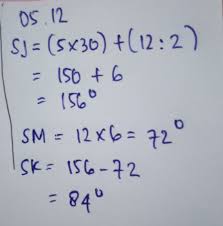 05.12
SJ = (5x30) + (12:2)
= 150 + 6
= 156°
SM = 12 x 6 = 72°
SK = 156 - 72
= 84°